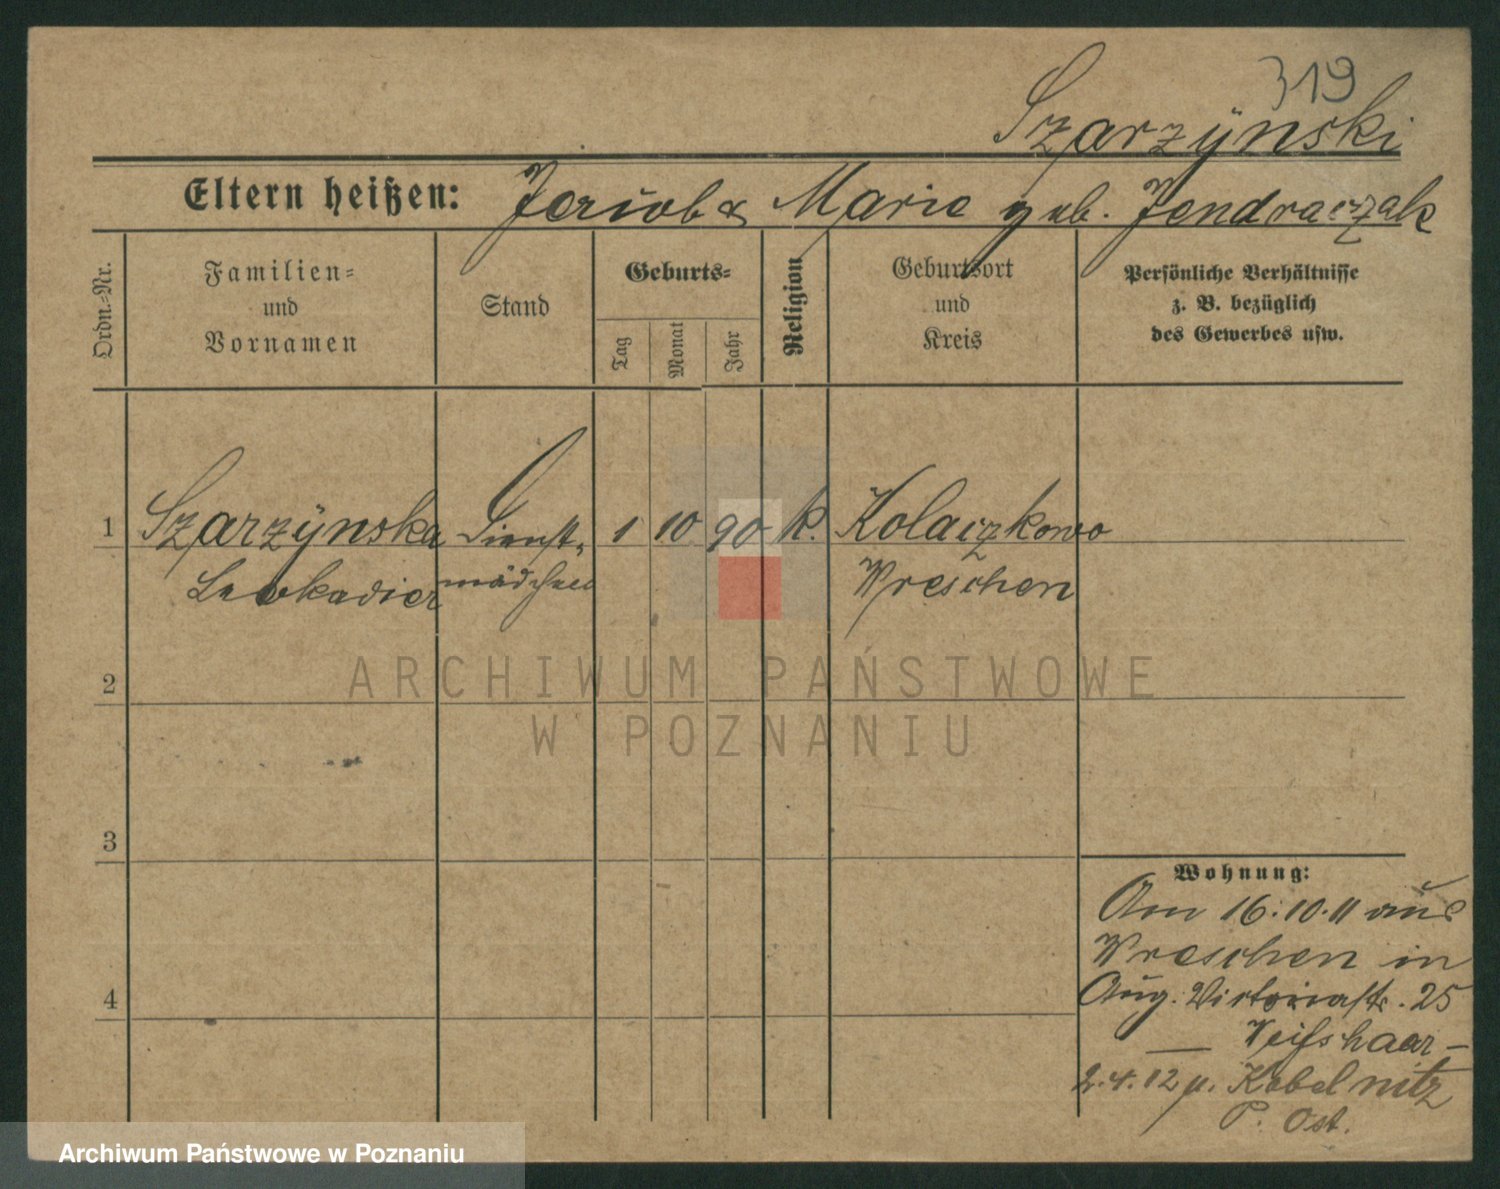 319
Szarzÿnski
Eltern heißen: Jakob & Marie geb. Jendraczak
Ordn.=Nr.
Familien=
und
Vornamen
Stand
Geburts=
Tag
Monat
Jahr
Religion
Geburtsort
und
Kreis
Persönliche Verhältnisse
z. B. bezüglich
des Gewerbes usw.
1 Szarzÿnska Dienst- 1 10 90 k. Kolaczkowo
Leokadia mädchen Wreschen
2
3
4
Wohnung:
Am 16.10.11 aus
Wreschen in
Aug. Victoriastr. 25
Weisshaar
2.4.12 n. Kobelnitz
P. Ost.
ARCHIWUM PAŃSTWOWE
W POZNANIU
Archiwum Państwowe w Poznaniu